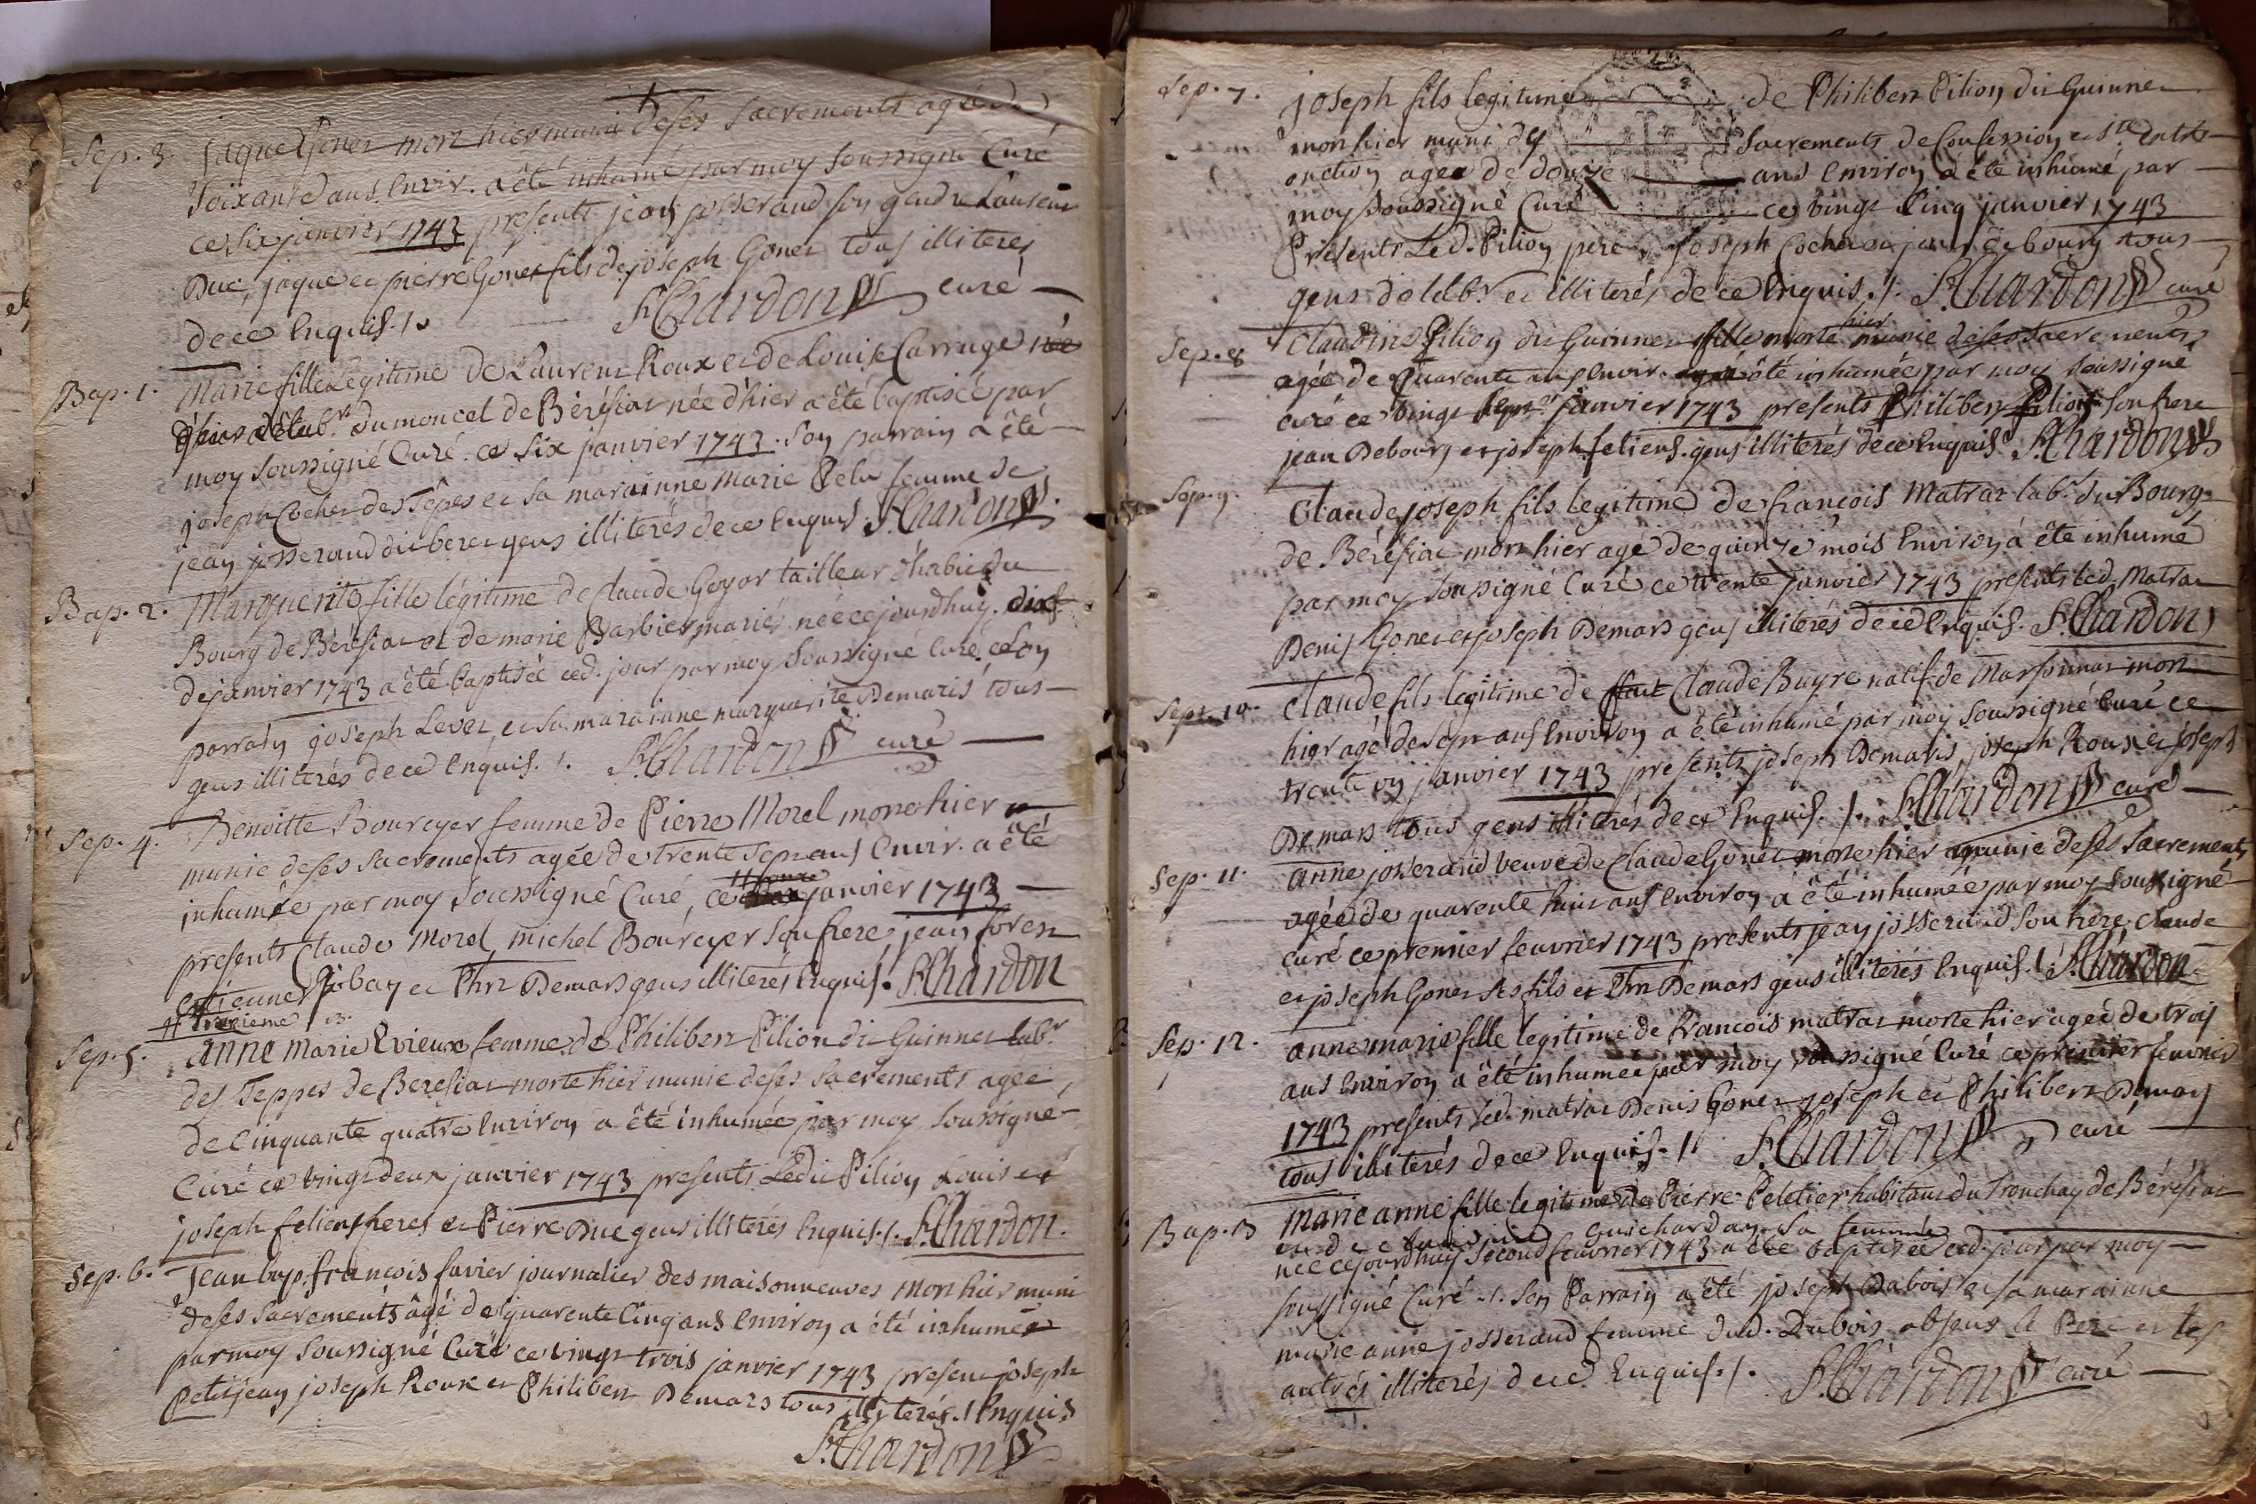 Sep. 3. Jaque Gonet mort hier muni de ses sacrements agé de
soixante ans envir. a été inhumé par moy soussigné Curé
ce six janvier 1743 presents jean josserand son gendre Laurent
Duc, jaque et pierre Gonet fils de joseph Gonet tous illiterés
de ce enquis ./. F. Chardon curé
Bap. 1. Marie fille Legitime de Laurent Roux et de Louise Carruge
lab.r du moncel de Bérésiat née d'hier a été baptisée par
moy soussigné Curé ce six janvier 1743. son parrain a été
joseph Cochet des Tepes et sa marainne Marie Pelu femme de
jean josserand dit beret gens illiterés de ce enquis F. Chardon
Bap. 2. Marguerite fille légitime de Claude Goyar tailleur d'habie du
Bourg de Bérésiat et de marie Barbier mariés née ce jourdhuy dix
de janvier 1743 a été baptisée ced. jour par moy soussigné Curé son
parrain joseph Levet et sa marainne marguerite Demaris tous
gens illiterés de ce enquis ./. F. Chardon curé
Sep. 4. Benoitte Boureyer femme de Pierre Morel morte hier
munie de ses sacrements agée de trente sept ans envir. a été
inhumée par moy soussigné Curé, ce janvier 1743
presents Claude Morel, michel Boureyer son frere, jean foren
etienne Pobay et Phrt Demars gens illiterés enquis. F. Chardon
treizieme 13.
Sep. 5. anne Marie Evieux femme de Philibert Pilion dit Guinnet lab.r
des Teppes de Beresiat morte hier munie de ses sacrements agée
de Cinquante quatre environ a été inhumée par moy soussigné
Curé ce vingt deux janvier 1743 presents Ledit Pilion Louis et
joseph feliens freres et Pierre Duc gens illiterés enquis ./. F. Chardon.
Sep. 6. Jean bap. françois favier journalier des maisonneuves mort hier muni
de ses sacrements âgé de Quarente Cinq ans environ a été inhumé
par moy soussigné Curé ce vingt trois janvier 1743 present joseph
petitjean joseph Roux et Philibert Demars tous illiterés ./. enquis
F. Chardon
Sep. 7. joseph fils legitime de Philibert Pilion dit Guinnet
mort hier muni des sacrements de Confession et st.e extr.
onction agé de douze ans environ a été inhumé par
moy soussigné Curé ce vingt Cinq janvier 1743
Presents Led. Pilion pere joseph Cochet jean debourg tous
gens de lab.r et illiterés de ce enquis ./. F. Chardon curé
Sep. 8 Claudine Pilion dit Guinnet fille morte hier munie de ses sacrements
agée de Quarente ans envir. a été inhumée par moy soussigné
curé ce vingt janvier 1743 presents Philibert Pilion son frere
jean Debourg et joseph feliens. gens illiterés de ce enquis. F. Chardon
Sep. 9. Claude joseph fils legitime de francois Matrat lab.r du Bourg
de Bérésiat mort hier agé de quinze mois environ a été inhumé
par moy soussigné Curé ce trente janvier 1743 presents led. Matrat
Denis Gonet et joseph Demars gens illiterés de ce enquis. F. Chardon
Sept. 10. Claude fils legitime de Claude Buyre natif de Marsonnas mort
hier agé de sept ans environ a été inhumé par moy soussigné Curé ce
trente un janvier 1743 presents joseph Demaris, joseph Roux et joseph
Demars tous gens illiterés de ce enquis. ./. F. Chardon curé
Sep. 11. anne josserand veuve de Claude Gonet morte hier munie de ses sacrements
agée de quarente huit ans environ a été inhumée par moy soussigné
Curé ce premier feuvrier 1743 presents jean josserand son frere, Claude
et joseph Gonet ses fils et Phrt Demars gens illiterés enquis. ./. F. Chardon
Sep. 12. anne marie fille legitime de francois matrat morte hier agée de trois
ans environ a été inhumée par moy soussigné Curé ce premier feuvrier
1743 presents led. matrat Denis Gonet joseph et Philibert Demars
tous illiterés de ce enquis. ./. F. Chardon curé
Bap. 13 Marie anne fille legitime de Pierre Peletier habitant du Tronchay de Bérésiat
et de Guichardan sa femme
née cejourdhuy second feuvrier 1743 a été baptisée ced. jour par moy
soussigné Curé ./. son Parrain a été joseph Dubois et sa marainne
marie anne josserand femme dud. Dubois absent le Pere et les
autres illiterés de ce enquis. ./. F. Chardon curé